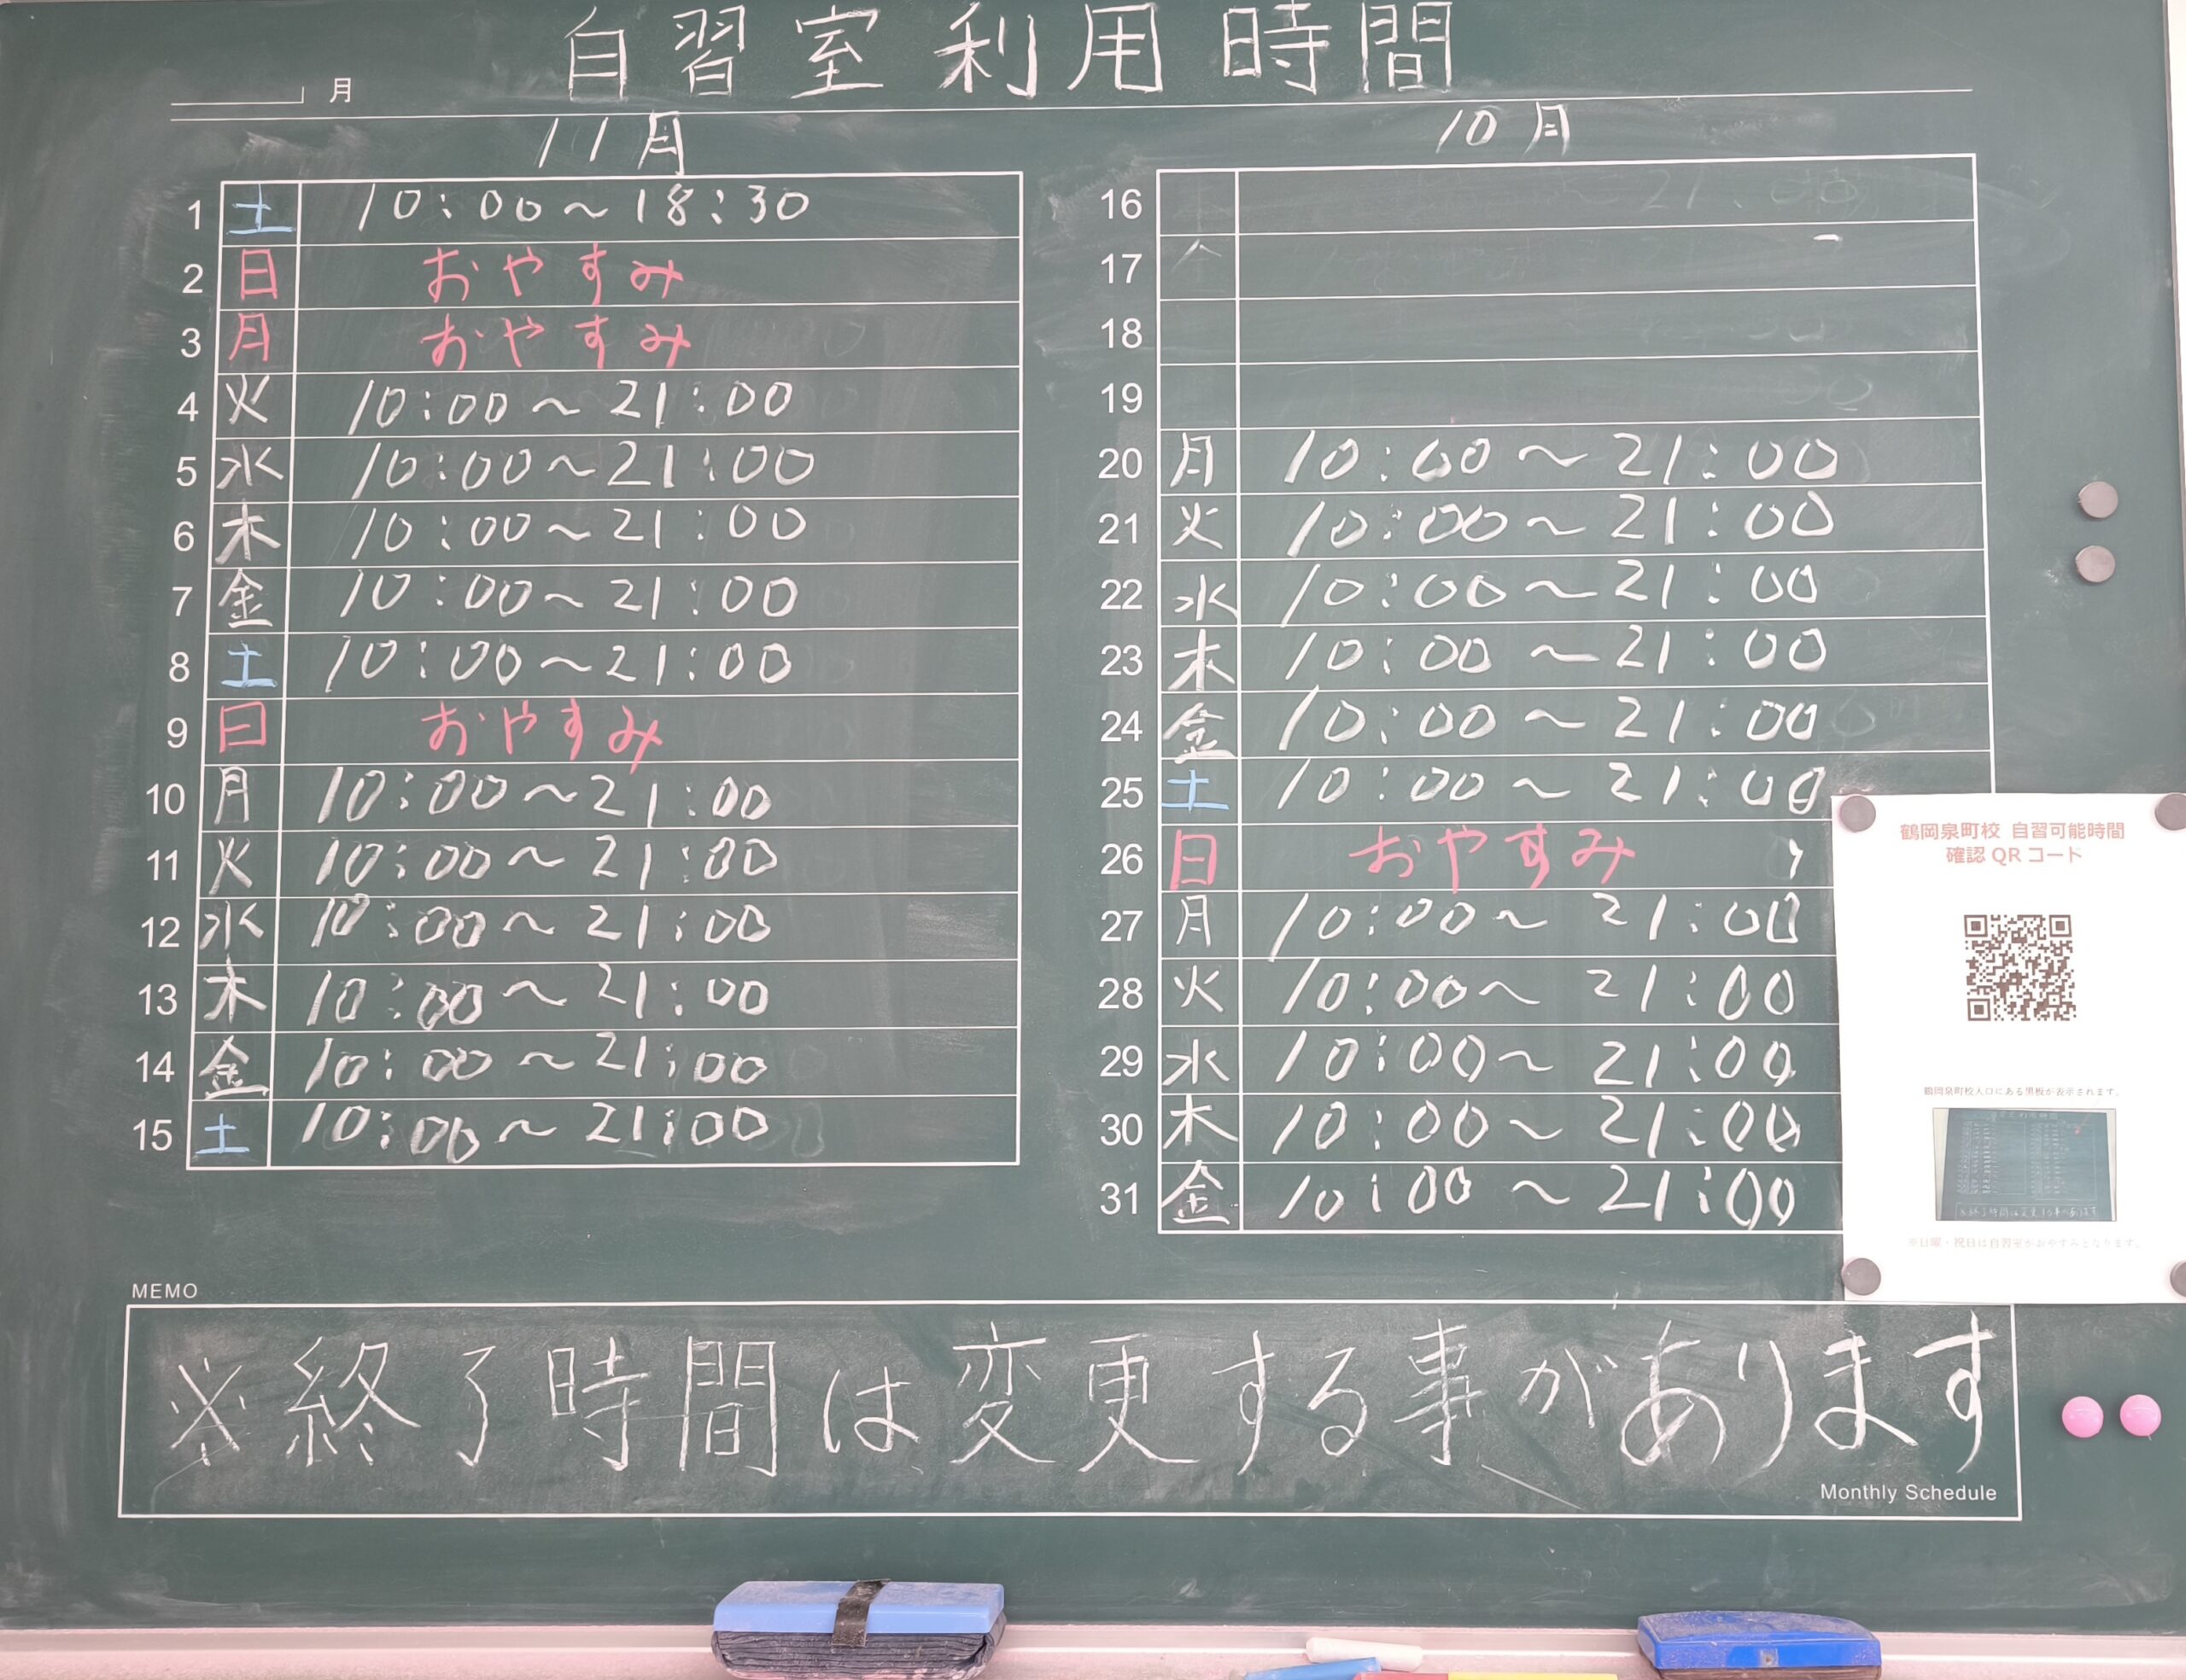 自習室利用時間
月
11月
1 土 10:00~18:30
2 日 おやすみ
3 月 おやすみ
4 火 10:00~21:00
5 水 10:00~21:00
6 木 10:00~21:00
7 金 10:00~21:00
8 土 10:00~21:00
9 日 おやすみ
10 月 10:00~21:00
11 火 10:00~21:00
12 水 10:00~21:00
13 木 10:00~21:00
14 金 10:00~21:00
15 土 10:00~21:00
10月
16
17
18
19
20 月 10:00~21:00
21 火 10:00~21:00
22 水 10:00~21:00
23 木 10:00~21:00
24 金 10:00~21:00
25 土 10:00~21:00
26 日 おやすみ
27 月 10:00~21:00
28 火 10:00~21:00
29 水 10:00~21:00
30 木 10:00~21:00
31 金 10:00~21:00
鶴岡泉町校 自習可能時間
確認QRコード
鶴岡泉町校入口にある黒板が表示されます。
※日曜・祝日は自習室がおやすみとなります。
MEMO
※終了時間は変更する事があります
Monthly Schedule